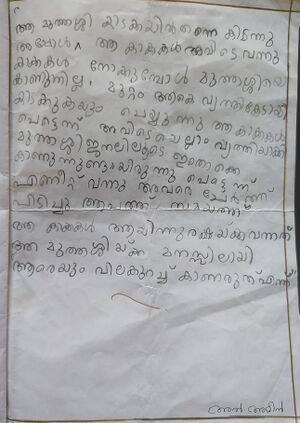 ആ മുത്തശ്ശി കിടക്കയിൽ തന്നെ കിടന്നു
അപ്പോൾ ആ കാക്കകൾ അവിടെ വന്നു
കാക്കകൾ നോക്കുമ്പോൾ മുത്തശ്ശിയെ
കാണുന്നില്ല, മുറ്റം ആകെ വൃത്തികേടായി
കിടക്കുകയും ചെയ്യുന്നു ആ കാക്കകൾ
പെട്ടെന്ന് അവിടെയെല്ലാം വൃത്തിയാക്കി
മുത്തശ്ശി ജനലിലൂടെ ഇതൊക്കെ
കാണുന്നുണ്ടായിരുന്നു പെട്ടെന്ന്
വന്നു അവരെ ചേർത്ത്
പിടിച്ചു
ആ കാക്കകൾ ആയിരുന്നു രക്ഷയ്ക്കുവന്നത്
ആ മുത്തശ്ശിയ്ക്ക് മനസ്സിലായി
ആരെയും വിലകുറച്ച് കാണരുത് എന്ന്